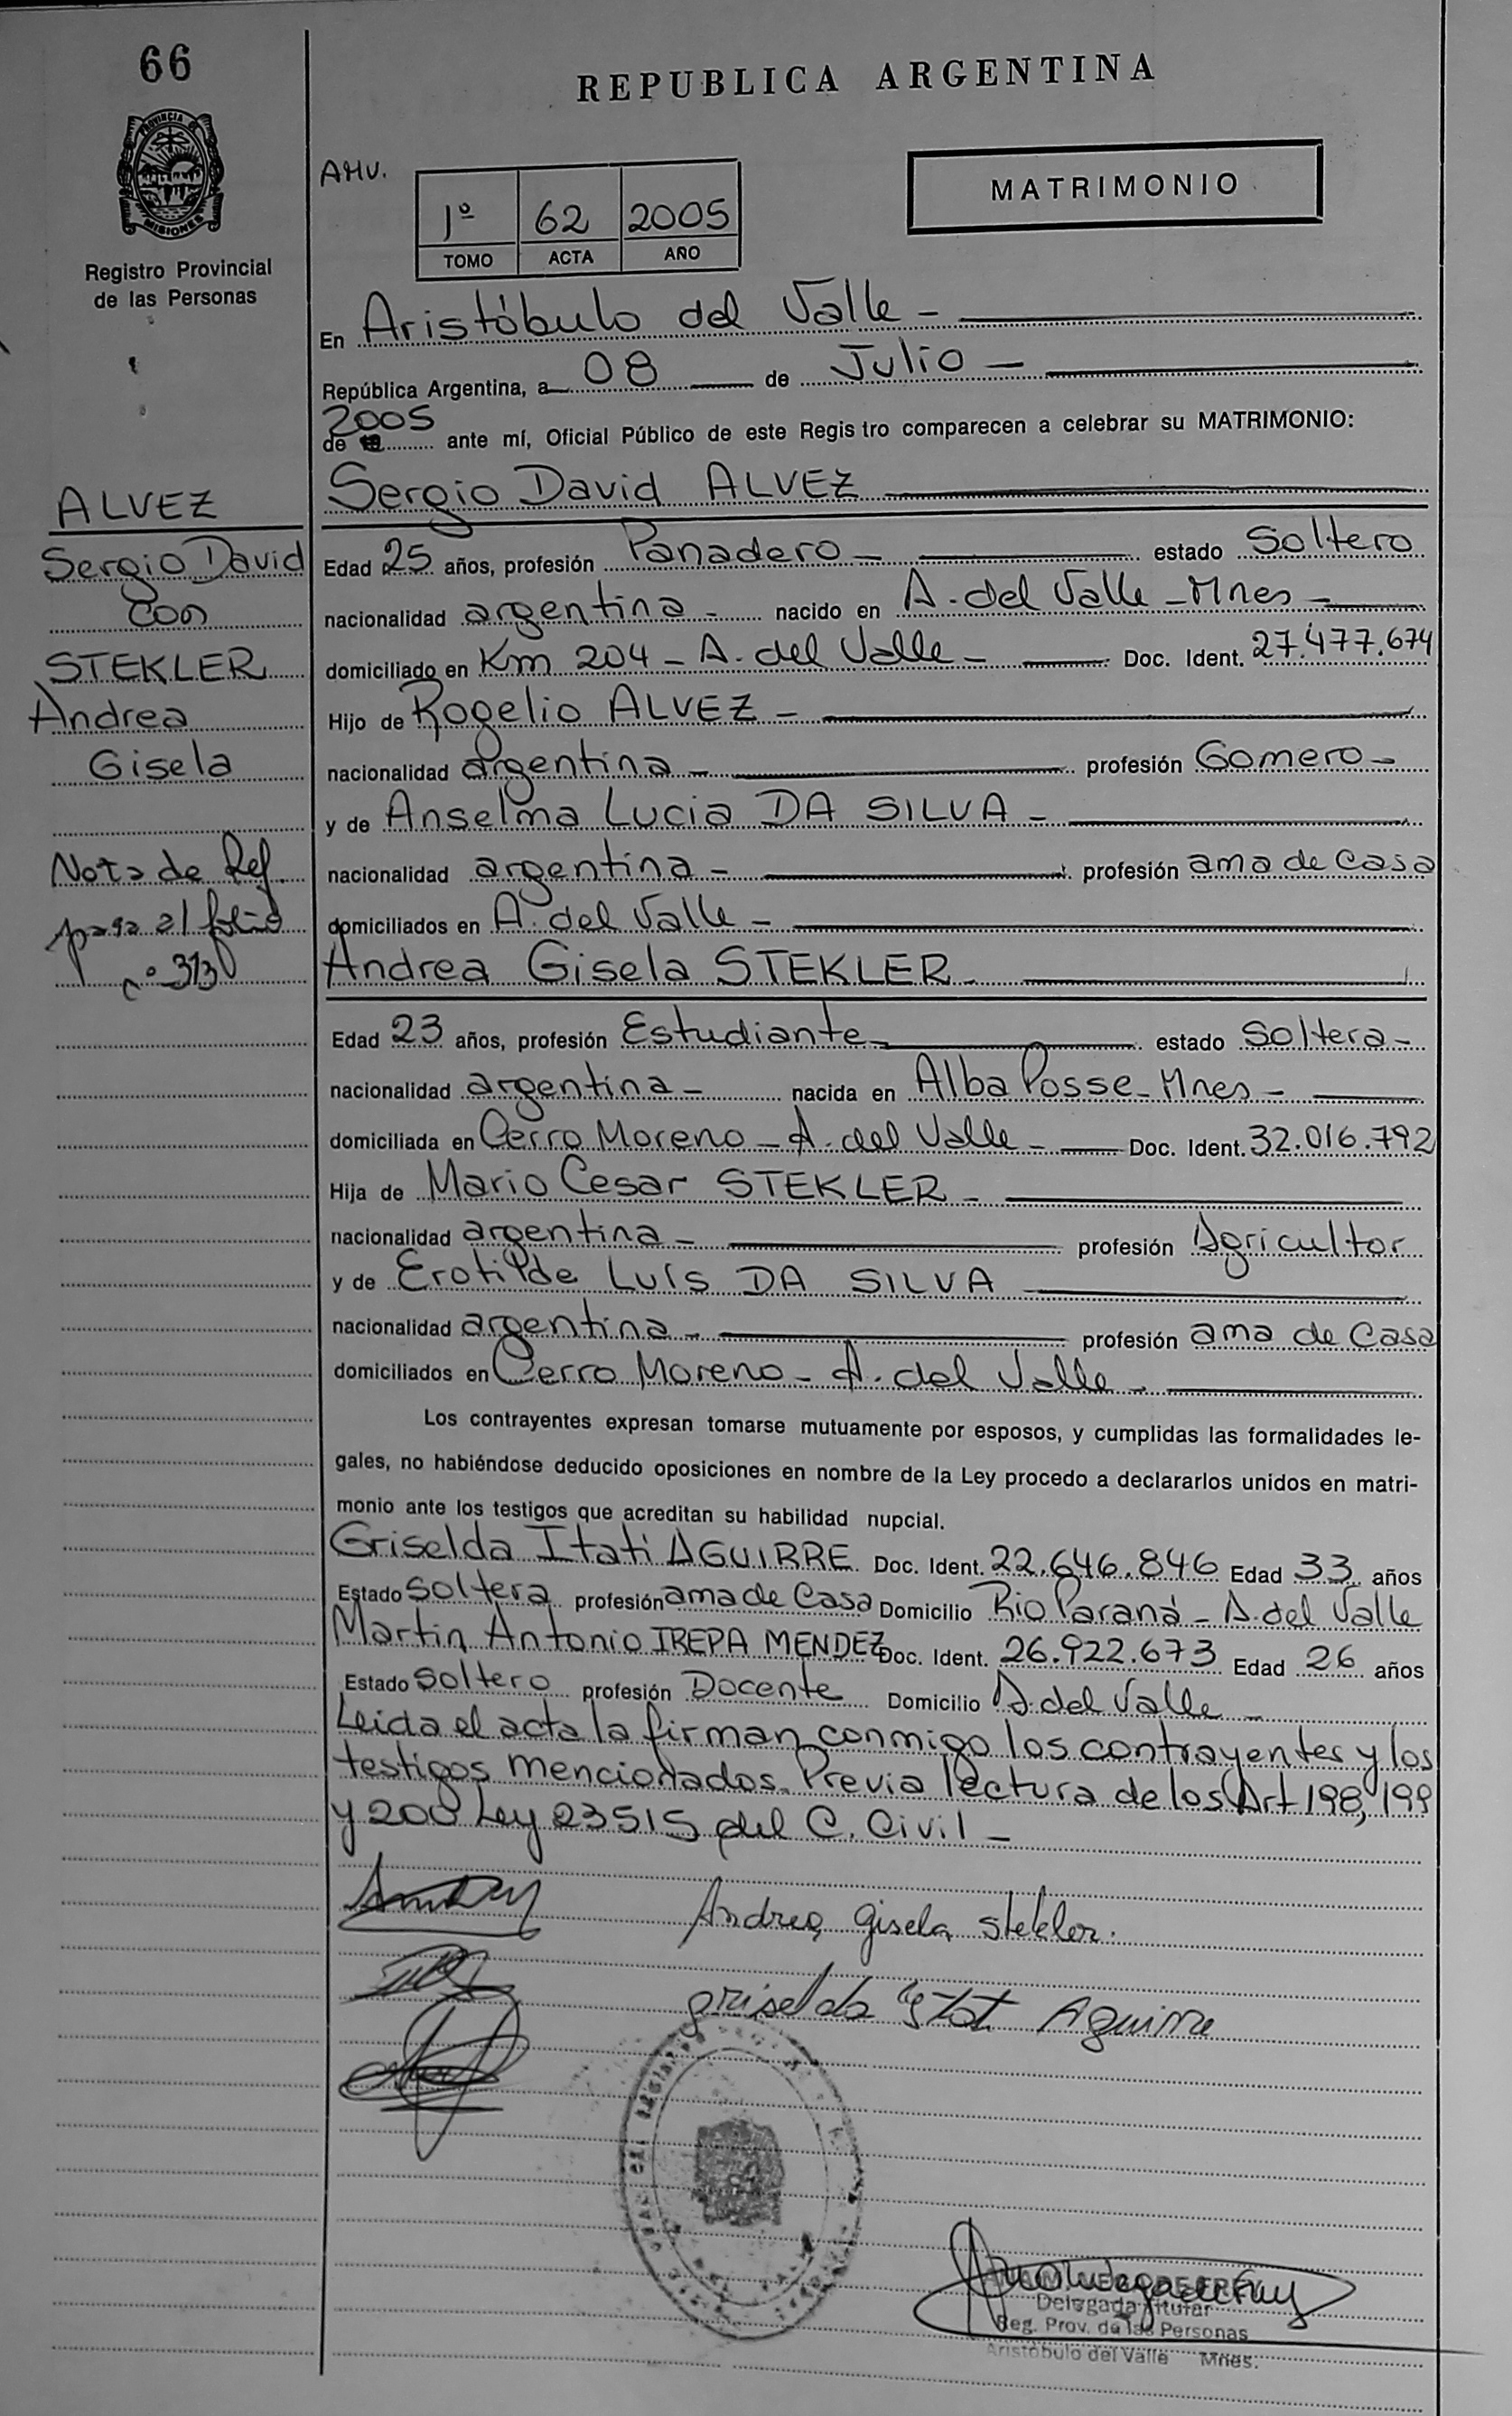 66
REPUBLICA ARGENTINA
PROVINCIA DE
MISIONES
Registro Provincial
de las Personas
AMV.
1º 62 2005
TOMO ACTA AÑO
MATRIMONIO
En Aristóbulo del Valle -
República Argentina, a 08 de Julio -
2005
de ante mí, Oficial Público de este Registro comparecen a celebrar su MATRIMONIO:
ALVEZ
Sergio David
con
STEKLER
Andrea
Gisela
Nota de Ref.
pasa al folio
nº 313
Sergio David ALVEZ
Edad 25 años, profesión Panadero - estado Soltero
nacionalidad argentina - nacido en A. del Valle - Mnes -
domiciliado en Km 204 - A. del Valle - Doc. Ident. 27.477.674
Hijo de Rogelio ALVEZ -
nacionalidad argentina - profesión Gomero -
y de Anselma Lucia DA SILVA -
nacionalidad argentina - profesión ama de casa
domiciliados en A. del Valle -
Andrea Gisela STEKLER -
Edad 23 años, profesión Estudiante - estado Soltera -
nacionalidad argentina - nacida en Alba Posse - Mnes -
domiciliada en Cerro Moreno - A. del Valle - Doc. Ident. 32.016.792
Hija de Mario Cesar STEKLER -
nacionalidad argentina - profesión Agricultor
y de Erotilde Luís DA SILVA
nacionalidad argentina - profesión ama de casa
domiciliados en Cerro Moreno - A. del Valle -
Los contrayentes expresan tomarse mutuamente por esposos, y cumplidas las formalidades le-
gales, no habiéndose deducido oposiciones en nombre de la Ley procedo a declararlos unidos en matri-
monio ante los testigos que acreditan su habilidad nupcial.
Griselda Itati AGUIRRE Doc. Ident. 22.646.846 Edad 33 años
Estado Soltera profesión ama de casa Domicilio Rio Paraná - A. del Valle
Martin Antonio IREPA MENDEZ Doc. Ident. 26.922.673 Edad 26 años
Estado Soltero profesión Docente Domicilio A. del Valle -
Leida el acta la firman conmigo los contrayentes y los
testigos mencionados. Previa lectura de los Art 198, 199
y 200 Ley 23515 del C. Civil -
Andrea gisela stekler.
griselda Aguirre
Delegada Titular
Reg. Prov. de las Personas
Aristóbulo del Valle Mnes.